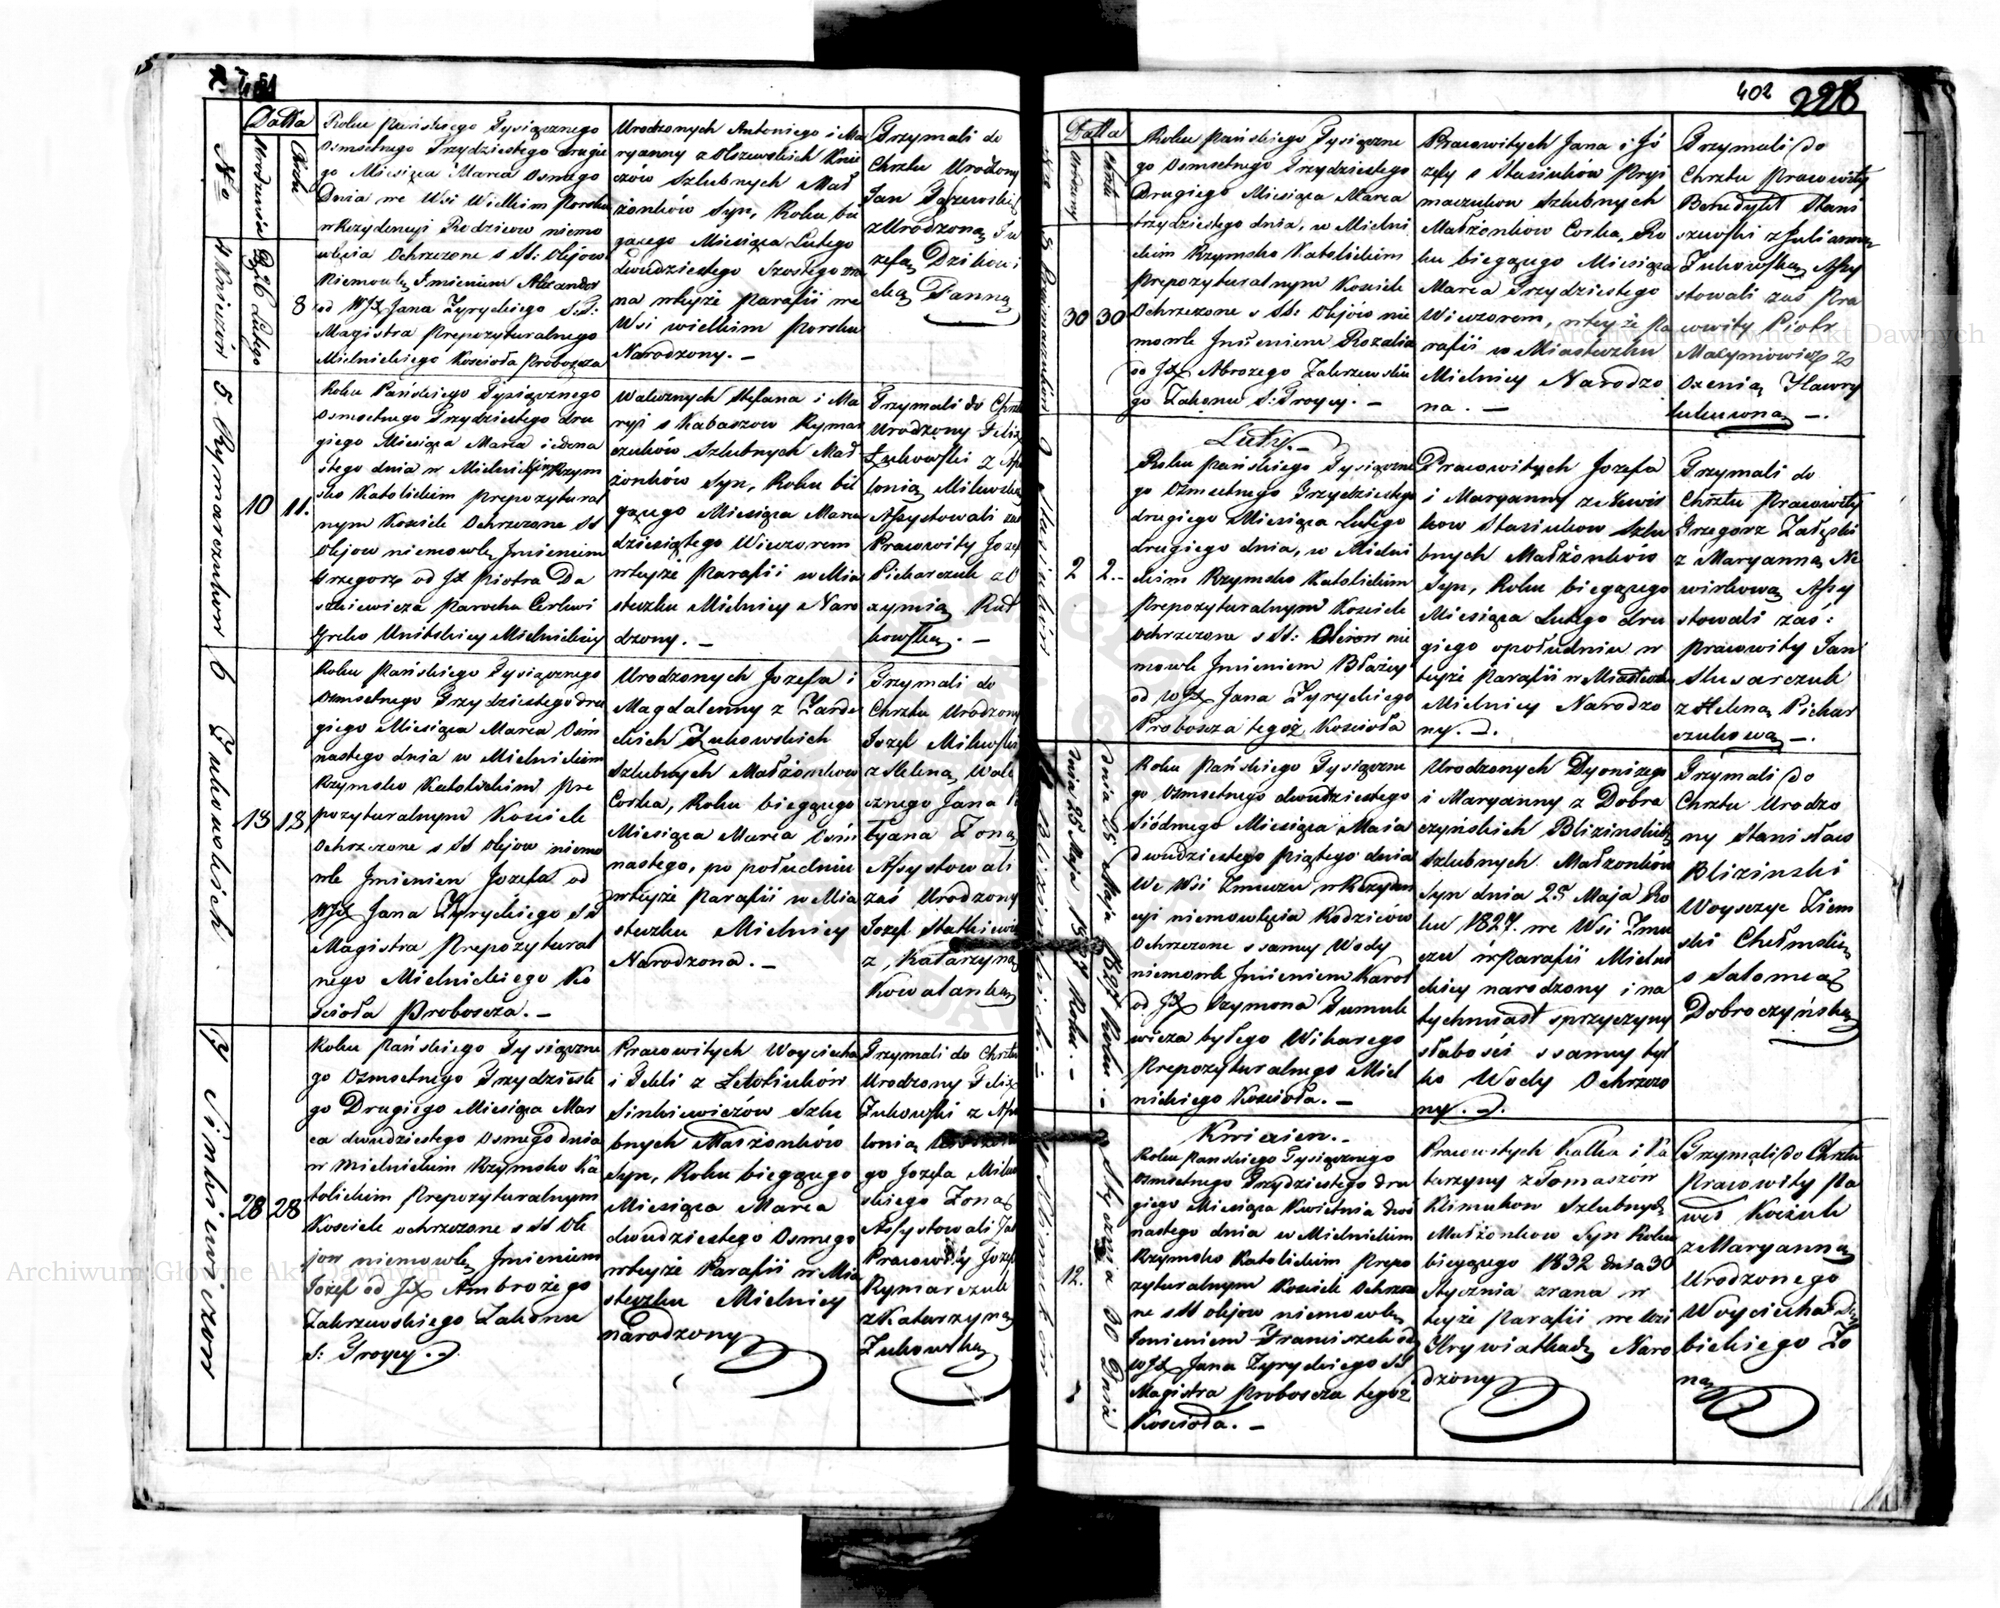 402
228
Datta
No
Urodzenia
Chrztu
4 Kniziów
D. 26 Lutego
8
Roku Pańskiego Tysiącznego
Osmsetnego Trzydziestego drugie
go Miesiąca Marca Osmego
Dnia we Wsi Wielkim Porsku
w Rezydencyi Rodzicow niemo
wlęcia Ochrzczone s SS: Olejow
Niemowlę Jmieniem Alexander
od WJX Jana Zyryckiego S: T:
Magistra Prepozyturalnego
Mielnickiego Kościoła Proboszcza
Urodzonych Antoniego i Ma
ryanny z Olszewskich Knie
ziow Szlubnych Mał
żonków Syn, Roku bie
gącego Miesiąca Lutego
dwudziestego Szostego zra
na wteyże Parafii we
Wsi wielkim Porsku
Narodzony. —
Trzymali do
Chrztu Urodzony
Jan
z Urodzoną Ju
zefą
Panną
5 Rymarczukow
10
11.
Roku Pańskiego Tysiącznego
Osmsetnego Trzydziestego dru
giego Miesiąca Marca jedena
stego dnia w Mielnickim Rzym
sko Katolickim Prepozytural
nym Kosciele Ochrzczone SS
Olejow niemowle Jmieniem
Grzegorz od JX Piotra Da
szkiewicza Parocha Cerkwi
Greko Unitskiey Mielnickiey
Walecznych Stefana i Ma
ryi s Kabaszow Rymar
czuków Szlubnych Mał
żonków Syn, Roku bie
gącego Miesiąca Marca
dziesiątego Wieczorem
wteyże Parafii w Mia
steczku Mielnicy Naro
dzony. —
Trzymali do Chrztu
Urodzony Felix
Żukowski Z Apo
lonią Milewską
Assystowali zas
Pracowity Jozef
Piekarczuk z O
xymią Rut
kowską. —
6 Żukowskich
13
13
Roku Pańskiego Tysiącznego
Osmsetnego Trzydziestego dru
giego Miesiąca Marca Osm
nastego dnia w Mielnickim
Rzymsko Katolickim Pre
pozyturalnym Kosciele
Ochrzczone s SS Olejow niemo
wle Jmieniem Jozefa od
WJX Jana Zyryckiego S T
Magistra Prepozytural
nego Mielnickiego Ko
scioła Proboszcza. —
Urodzonych Jozefa i
Magdalenny z Zarde
ckich Żukowskich
Szlubnych Małżonkow
Corka, Roku biegącego
Miesiąca Marca Osm
nastego, po południu
wteyże Parafii w Mia
steczku Mielnicy
Narodzona. —
Trzymali do
Chrztu Urodzony
Jozef Milewski
z Heleną Wale
cznego Jana
Zoną
Assystowali
zaś Urodzony
Jozef Statkiewicz
z Katarzyną
Kowalanką
7 Sinkiewiczow
28
28
Roku Pańskiego Tysiączne
go Osmsetnego Trzydzieste
go Drugiego Miesiąca Mar
ca dwudziestego Osmego dnia
w Mielnickim Rzymsko Ka
tolickim Prepozyturalnym
Kosciele ochrzczone s SS Ole
jow niemowle Jmieniem
Jozef od JX Ambrożego
Zakrzewskiego Zakonu
S: Troycy.
Pracowitych Woyciecha
i Tekli z Letoliuków
Sinkiewiczów Szlu
bnych Małżonków
Syn, Roku biegącego
Miesiąca Marca
dwudziestego Osmego
wteyże Parafii w Mia
steczku Mielnicy
narodzony
Trzymali do Chrztu
Urodzony Felix
Żukowski z Apo
lonią Urodzone
go Jozefa Milew
skiego Zoną
Assystowali zas
Pracowity Jozef
Rymarczuk
z Katarzyną
Żukowską
Datta
Urodzenia
Chrztu
30
30
Roku Pańskiego Tysiączne
go Osmsetnego Trzydziestego
Drugiego Miesiąca Marca
trzydziestego dnia, w Mielni
ckim Rzymsko Katolickim
Prepozyturalnym Kosciele
Ochrzczone s SS: Olejów nie
mowle Jmieniem Rozalia
od JX Abrożego Zakrzewskie
go Zakonu S: Troycy. —
Pracowitych Jana i Jó
zefy s Stasiuków Pryj
maczukow Szlubnych
Małżonków Corka, Ro
ku biegącego Miesiąca
Marca Trzydziestego
Wieczorem, wtey że Pa
rafii w Miasteczku
Mielnicy Narodzo
na. —
Trzymali do
Chrztu Pracowity
Benedykt Stani
szewski z Julianną
Żukowską Assy
stowali zaś Pra
cowity Piotr
Matyniowicz z
Oxenią Hawry
lukowną —.
9 Stasiuków
2
2.
Luty. —
Roku Pańskiego Tysiączne
go Osmsetnego Trzydziestego
drugiego Miesiąca Lutego
drugiego dnia, w Mielni
ckim Rzymsko Katolickim
Prepozyturalnym Kosciele
ochrzczone s SS: Olejow nie
mowle Jmieniem Błażey
od WJX Jana Zyryckiego
Proboszcza tegoż Kościoła
Pracowitych Jozefa
i Maryanny ze Lewis
kow Stasiukow Szlu
bnych Małżonków
Syn, Roku biegącego
Miesiąca Lutego dru
giego opołudniu w
teyże Parafii w Miasteczku
Mielnicy Narodzo
ny. —.
Trzymali do
Chrztu Pracowity
Grzegorz Załęski
z Maryanną Ne
wirkową Assy
stowali zaś:
Pracowity Jan
Slusarczuk
z Heleną Piekar
czukową —.
Dnia 25 Maja 1827 Roku. —
Dnia 25 Maja 1827 Roku. —
Blizinskich. —
Roku Pańskiego Tysiączne
go Osmsetnego dwudziestego
siódmego Miesiąca Maja
dwudziestego piątego dnia
We Wsi Zmuczu, w Rezyden
cyi niemowlęcia Rodziców
Ochrzczone s samey Wody
niemowle Jmieniem Karol
od JX Szymona Tumule
wicza byłego Wikarego
Prepozyturalnego Miel
nickiego Kościoła. —
Urodzonych Dyonizego
i Maryanny z Dobra
czyńskich Blizinskich
Szlubnych Małżonków
Syn dnia 25 Maja Ro
ku 1827. we Wsi Zmu
czu w Parafii Mielni
ckiey narodzony i na
tychmiast sprzyczyny
słabości s samey tyl
ko Wody Ochrzczo
ny. —.
Trzymali do
Chrztu Urodzo
ny Stanisław
Blizinski
Woyszczyc Ziem
ski Chełmski
s Salomeą
Dobroczyńską
Klimukow
Stycznia 30 Dnia
12.
Kwiecien. —
Roku Pańskiego Tysiącznego
Osmsetnego Trzydziestego dru
giego Miesiąca Kwietnia dwó
nastego dnia w Mielnickim
Rzymsko Katolickim Prepo
zyturalnym Kosciele Ochrzczo
ne s SS olejow niemowle
Jmieniem Franciszek od
WJX Jana Zyryckiego S T
Magistra Proboszcza tegoż
Kościoła. —
Pracowitych Kalka i Ka
tarzyny z Tomaszów
Klimukow Szlubnych
Małżonkow Syn Roku
biegącego 1832 dnia 30
Stycznia zrana w
teyże Parafii we wsi
Krywiatkach Naro
dzony
Trzymali do Chrztu
Pracowity Pa
weł Kozuk
z Maryanną
Urodzonego
Woyciecha Dę
bickiego Zo
ną
Archiwum Główne Akt Dawnych
Archiwum Główne Akt Dawnych